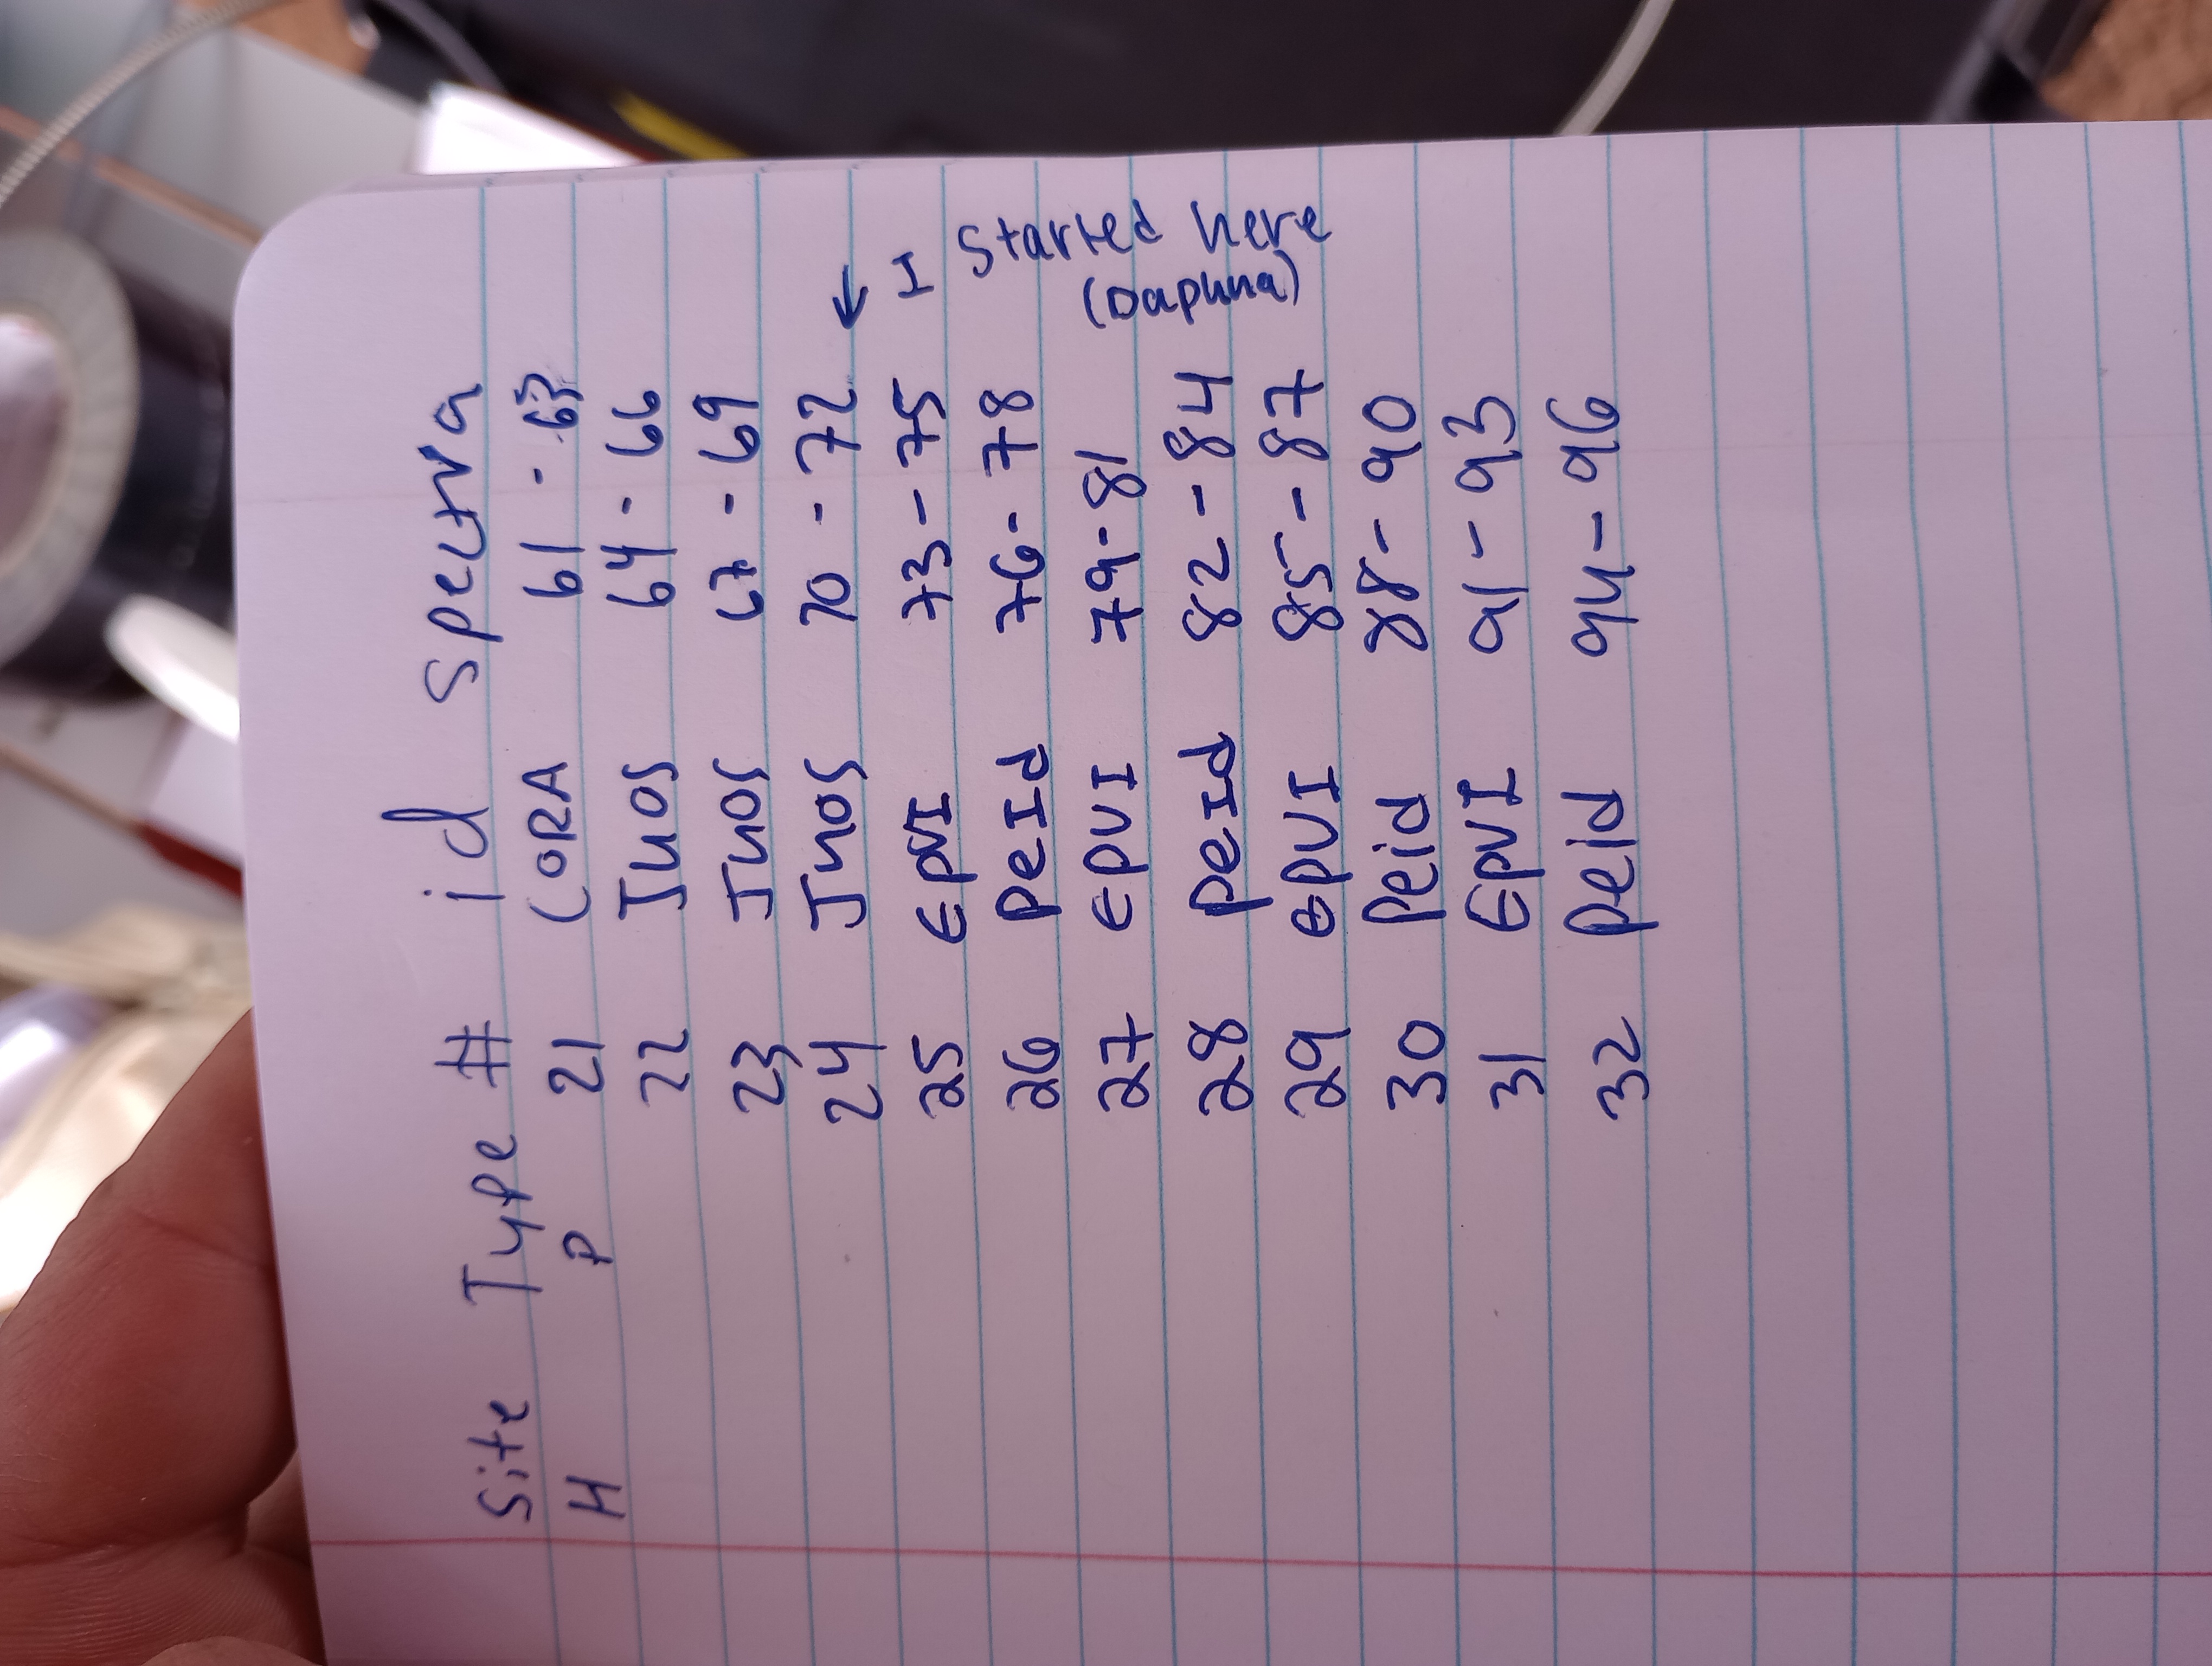 Site Type # id spectra
H P 21 CORA 61 - 63
22 Juos 64 - 66
23 Juos 67 - 69
24 Juos 70 - 72
25 EpVI 73 - 75
26 PeId 76 - 78
27 EPVI 79 - 81
28 peId 82 - 84
29 EPVI 85 - 87
30 Peid 88 - 90
31 EpVI 91 - 93
32 Peid 94 - 96
← I Started here
(Daphna)